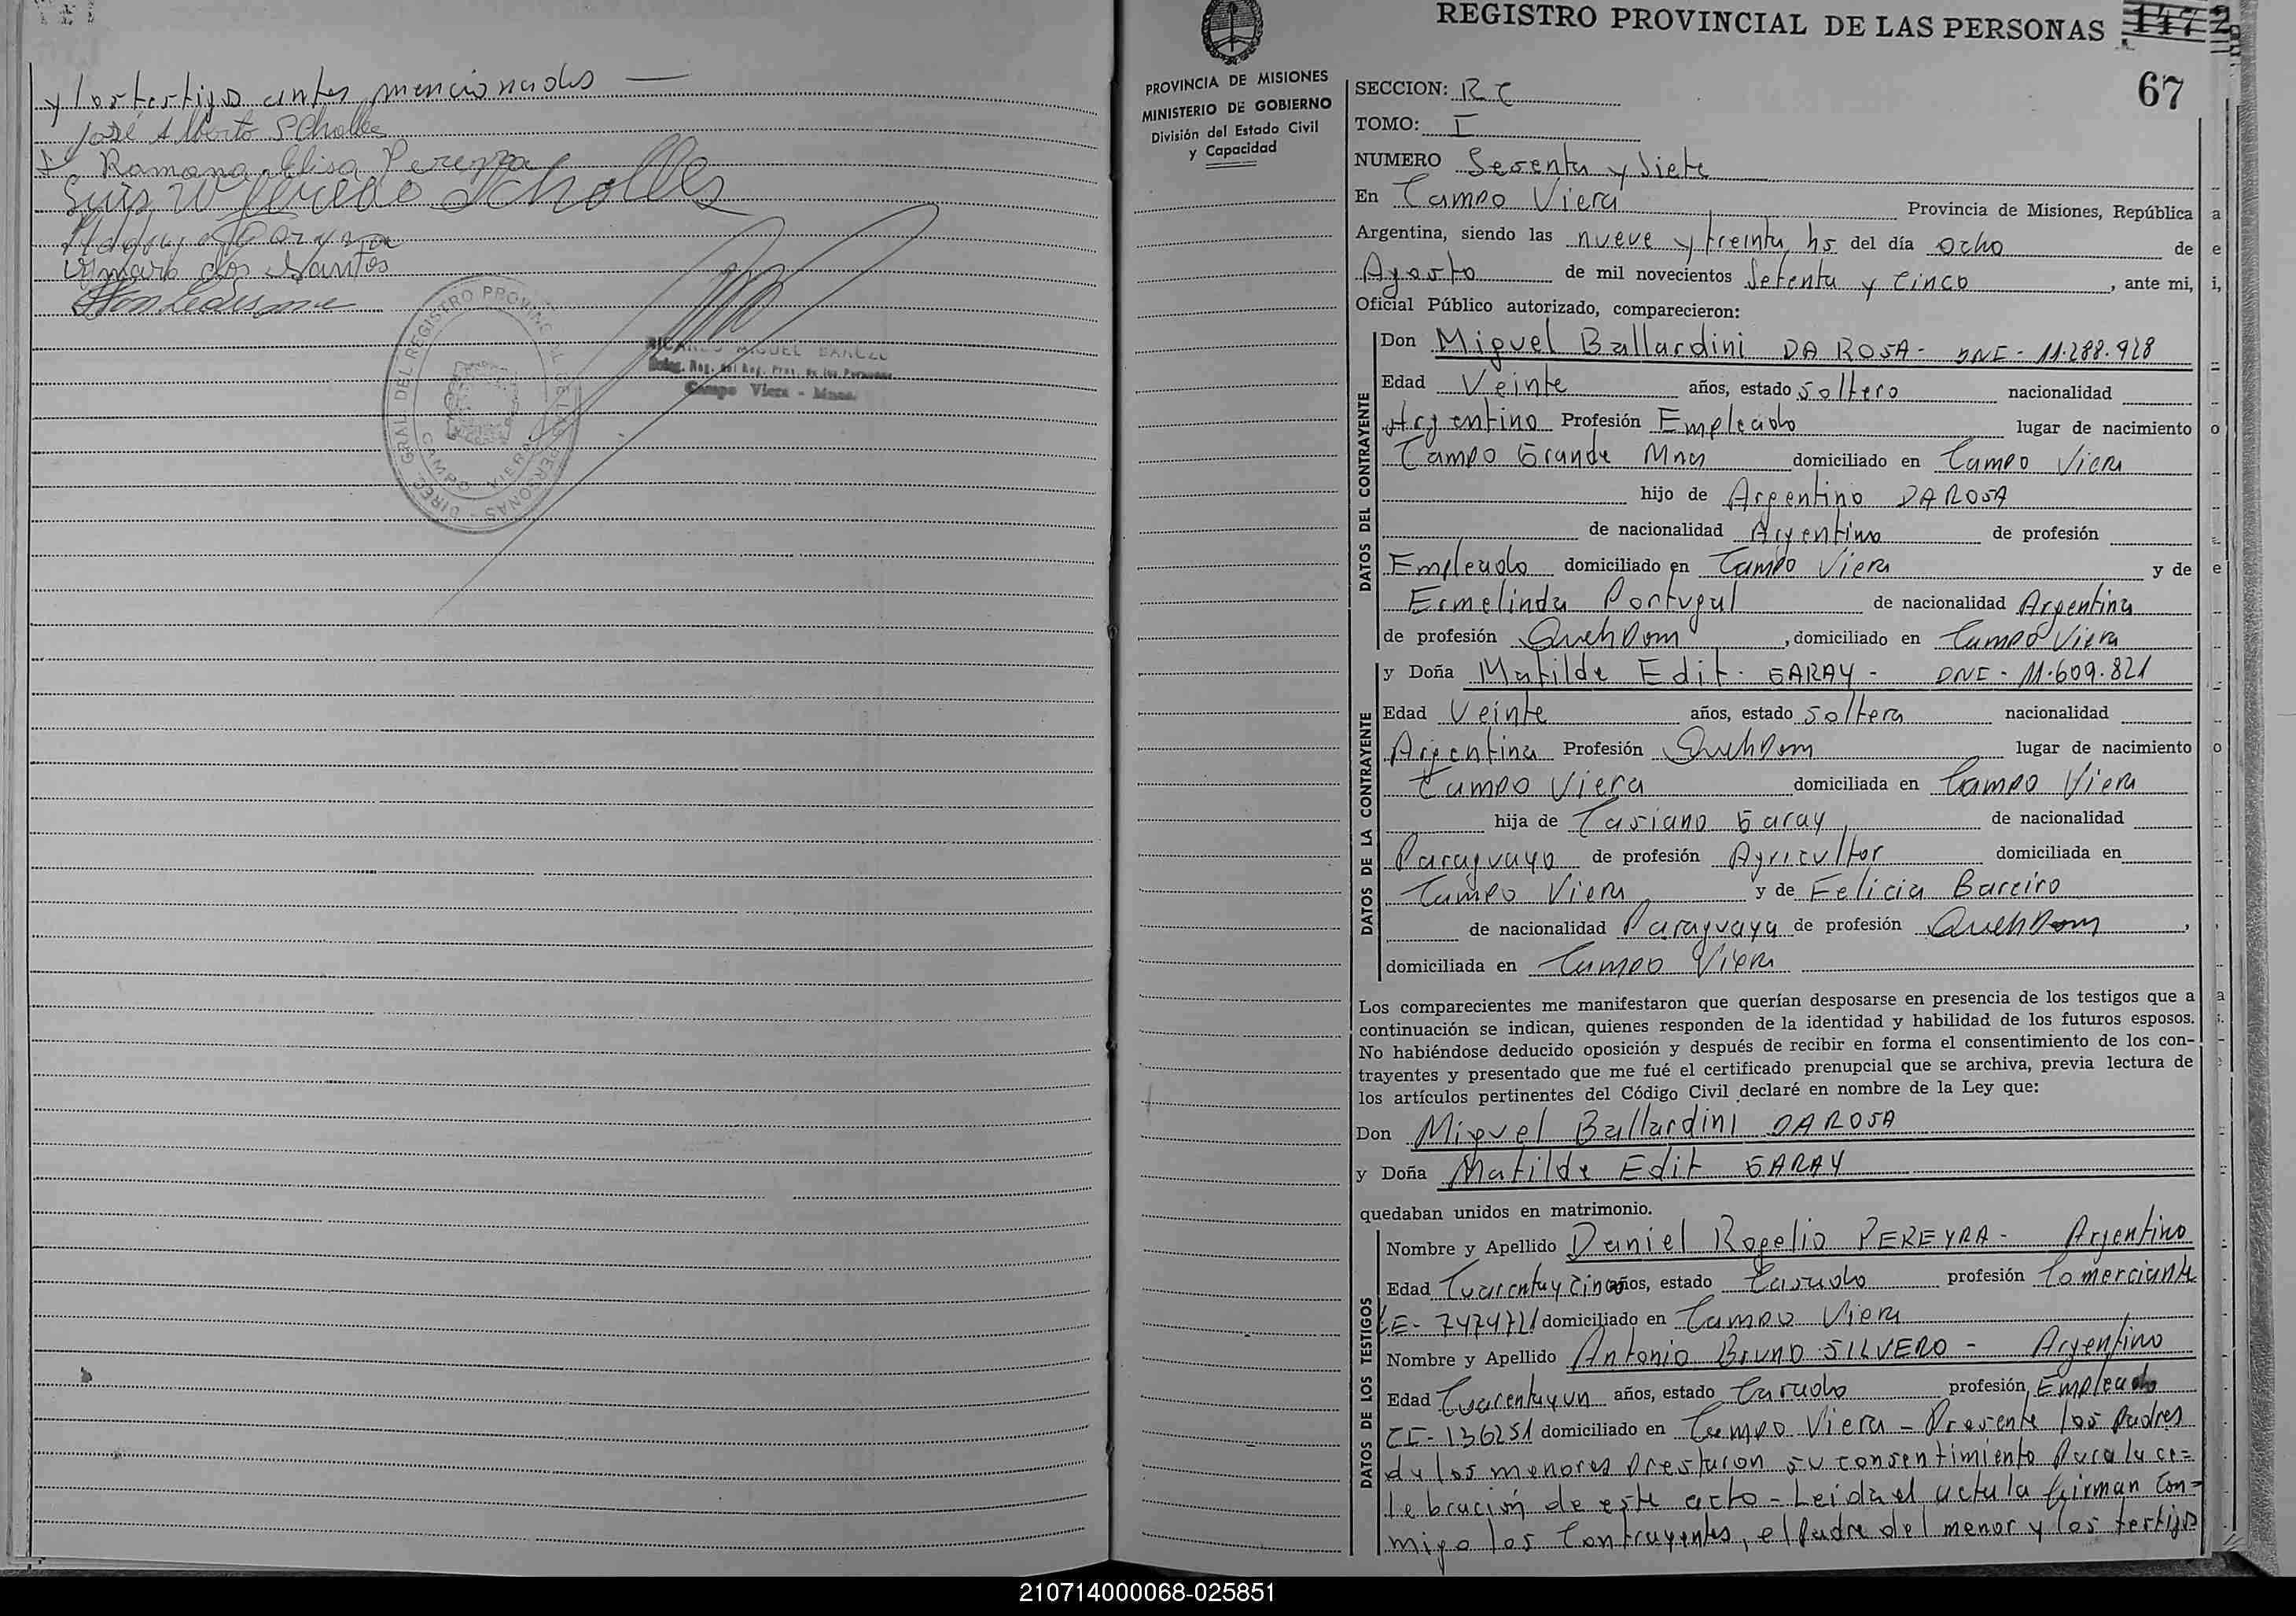 y los testigos antes mencionados —
José Alberto SCholles
Ramona Elisa Pereyra
Luis W Scholles
dos Santos
DIREC. GRAL. DEL REGISTRO PROVINCIAL DE LAS PERSONAS
CAMPO VIERA
MIGUEL
Deleg. Reg. del Reg. Prov. de las Personas
Campo Viera - Mnes.
REGISTRO PROVINCIAL DE LAS PERSONAS 1472
67
PROVINCIA DE MISIONES
MINISTERIO DE GOBIERNO
División del Estado Civil
y Capacidad
SECCION: RC
TOMO: I
NUMERO Sesenta y Siete
En Campo Viera Provincia de Misiones, República
Argentina, siendo las nueve y treinta hs del día ocho de
Agosto de mil novecientos Setenta y Cinco, ante mi,
Oficial Público autorizado, comparecieron:
DATOS DEL CONTRAYENTE
Don Miguel Ballardini DA ROSA - DNI - 11.288.928
Edad Veinte años, estado soltero nacionalidad
Argentino Profesión Empleado lugar de nacimiento
Campo Grande Mnes domiciliado en Campo Viera
hijo de Argentino DA ROSA
de nacionalidad Argentino de profesión
Empleado domiciliado en Campo Viera y de
Ermelinda Portugal de nacionalidad Argentina
de profesión QuehDom, domiciliado en Campo Viera
DATOS DE LA CONTRAYENTE
y Doña Matilde Edit. GARAY - DNI - 11.609.821
Edad Veinte años, estado soltera nacionalidad
Argentina Profesión QuehDom lugar de nacimiento
Campo Viera domiciliada en Campo Viera
hija de Casiano Garay, de nacionalidad
Paraguayo de profesión Agricultor domiciliada en
Campo Viera y de Felicia Bareiro
de nacionalidad Paraguaya de profesión QuehDom,
domiciliada en Campo Viera
Los comparecientes me manifestaron que querían desposarse en presencia de los testigos que a
continuación se indican, quienes responden de la identidad y habilidad de los futuros esposos.
No habiéndose deducido oposición y después de recibir en forma el consentimiento de los con-
trayentes y presentado que me fué el certificado prenupcial que se archiva, previa lectura de
los artículos pertinentes del Código Civil declaré en nombre de la Ley que:
Don Miguel Ballardini DA ROSA
y Doña Matilde Edit GARAY
quedaban unidos en matrimonio.
DATOS DE LOS TESTIGOS
Nombre y Apellido Daniel Rogelio PEREYRA - Argentino
Edad Cuarentaycinco años, estado Casado profesión Comerciante
LE - 7474721 domiciliado en Campo Viera
Nombre y Apellido Antonio Bruno SILVERO - Argentino
Edad Cuarentayun años, estado Casado profesión Empleado
CI - 136251 domiciliado en Campo Viera - Presente los padres
de los menores prestaron su consentimiento para la ce=
lebración de este acto - Leida el acta la firman con=
migo los Contrayentes, el Padre del menor y los testigos
210714000068-025851